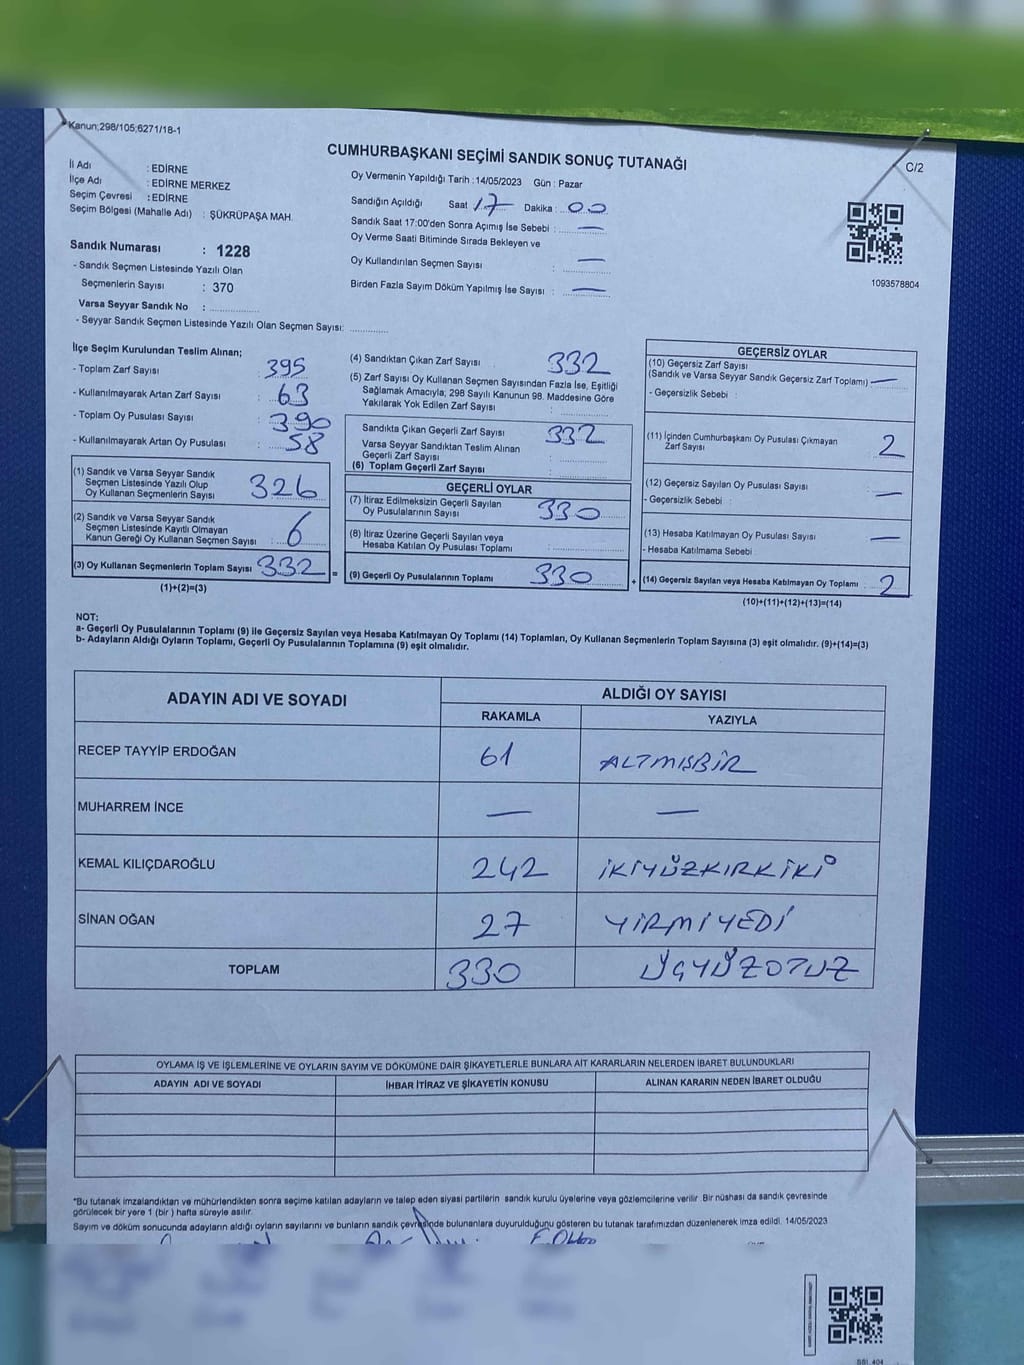 Kanun;298/105;6271/18-1
CUMHURBAŞKANI SEÇİMİ SANDIK SONUÇ TUTANAĞI
C/2
İl Adı : EDİRNE
İlçe Adı : EDİRNE MERKEZ
Seçim Çevresi : EDİRNE
Seçim Bölgesi (Mahalle Adı) : ŞÜKRÜPAŞA MAH.
Sandık Numarası : 1228
- Sandık Seçmen Listesinde Yazılı Olan
Seçmenlerin Sayısı : 370
Varsa Seyyar Sandık No :
- Seyyar Sandık Seçmen Listesinde Yazılı Olan Seçmen Sayısı:
Oy Vermenin Yapıldığı Tarih : 14/05/2023 Gün : Pazar
Sandığın Açıldığı Saat 17 Dakika : 00
Sandık Saat 17:00'den Sonra Açımış İse Sebebi : —
Oy Verme Saati Bitiminde Sırada Bekleyen ve
Oy Kullandırılan Seçmen Sayısı : —
Birden Fazla Sayım Döküm Yapılmış İse Sayısı : —
1093578804
İlçe Seçim Kurulundan Teslim Alınan;
- Toplam Zarf Sayısı : 395
- Kullanılmayarak Artan Zarf Sayısı : 63
- Toplam Oy Pusulası Sayısı : 390
- Kullanılmayarak Artan Oy Pusulası : 58
(1) Sandık ve Varsa Seyyar Sandık
Seçmen Listesinde Yazılı Olup
Oy Kullanan Seçmenlerin Sayısı 326
(2) Sandık ve Varsa Seyyar Sandık
Seçmen Listesinde Kayıtlı Olmayan
Kanun Gereği Oy Kullanan Seçmen Sayısı : 6
(3) Oy Kullanan Seçmenlerin Toplam Sayısı 332 =
(1)+(2)=(3)
(4) Sandıktan Çıkan Zarf Sayısı 332
(5) Zarf Sayısı Oy Kullanan Seçmen Sayısından Fazla İse, Eşitliği
Sağlamak Amacıyla; 298 Sayılı Kanunun 98. Maddesine Göre
Yakılarak Yok Edilen Zarf Sayısı :
Sandıkta Çıkan Geçerli Zarf Sayısı 332
Varsa Seyyar Sandıktan Teslim Alınan
Geçerli Zarf Sayısı :
(6) Toplam Geçerli Zarf Sayısı :
GEÇERLİ OYLAR
(7) İtiraz Edilmeksizin Geçerli Sayılan
Oy Pusulalarının Sayısı : 330
(8) İtiraz Üzerine Geçerli Sayılan veya
Hesaba Katılan Oy Pusulası Toplamı :
(9) Geçerli Oy Pusulalarının Toplamı 330 +
GEÇERSİZ OYLAR
(10) Geçersiz Zarf Sayısı
(Sandık ve Varsa Seyyar Sandık Geçersiz Zarf Toplamı) —
- Geçersizlik Sebebi :
(11) İçinden Cumhurbaşkanı Oy Pusulası Çıkmayan
Zarf Sayısı 2
(12) Geçersiz Sayılan Oy Pusulası Sayısı —
- Geçersizlik Sebebi :
(13) Hesaba Katılmayan Oy Pusulası Sayısı —
- Hesaba Katılmama Sebebi
(14) Geçersiz Sayılan veya Hesaba Katılmayan Oy Toplamı : 2
(10)+(11)+(12)+(13)=(14)
NOT:
a- Geçerli Oy Pusulalarının Toplamı (9) ile Geçersiz Sayılan veya Hesaba Katılmayan Oy Toplamı (14) Toplamları, Oy Kullanan Seçmenlerin Toplam Sayısına (3) eşit olmalıdır. (9)+(14)=(3)
b- Adayların Aldığı Oyların Toplamı, Geçerli Oy Pusulalarının Toplamına (9) eşit olmalıdır.
ADAYIN ADI VE SOYADI ALDIĞI OY SAYISI
RAKAMLA YAZIYLA
RECEP TAYYİP ERDOĞAN 61 ALTMIŞBİR
MUHARREM İNCE — —
KEMAL KILIÇDAROĞLU 242 İKİYÜZKIRKİKİ
SİNAN OĞAN 27 YİRMİYEDİ
TOPLAM 330 ÜÇYÜZOTUZ
OYLAMA İŞ VE İŞLEMLERİNE VE OYLARIN SAYIM VE DÖKÜMÜNE DAİR ŞİKAYETLERLE BUNLARA AİT KARARLARIN NELERDEN İBARET BULUNDUKLARI
ADAYIN ADI VE SOYADI İHBAR İTİRAZ VE ŞİKAYETİN KONUSU ALINAN KARARIN NEDEN İBARET OLDUĞU
*Bu tutanak imzalandıktan ve mühürlendikten sonra seçime katılan adayların ve talep eden siyasi partilerin sandık kurulu üyelerine veya gözlemcilerine verilir. Bir nüshası da sandık çevresinde
görülecek bir yere 1 (bir) hafta süreyle asılır.
Sayım ve döküm sonucunda adayların aldığı oyların sayılarını ve bunların sandık çevresinde bulunanlara duyurulduğunu gösteren bu tutanak tarafımızdan düzenlenerek imza edildi. 14/05/2023